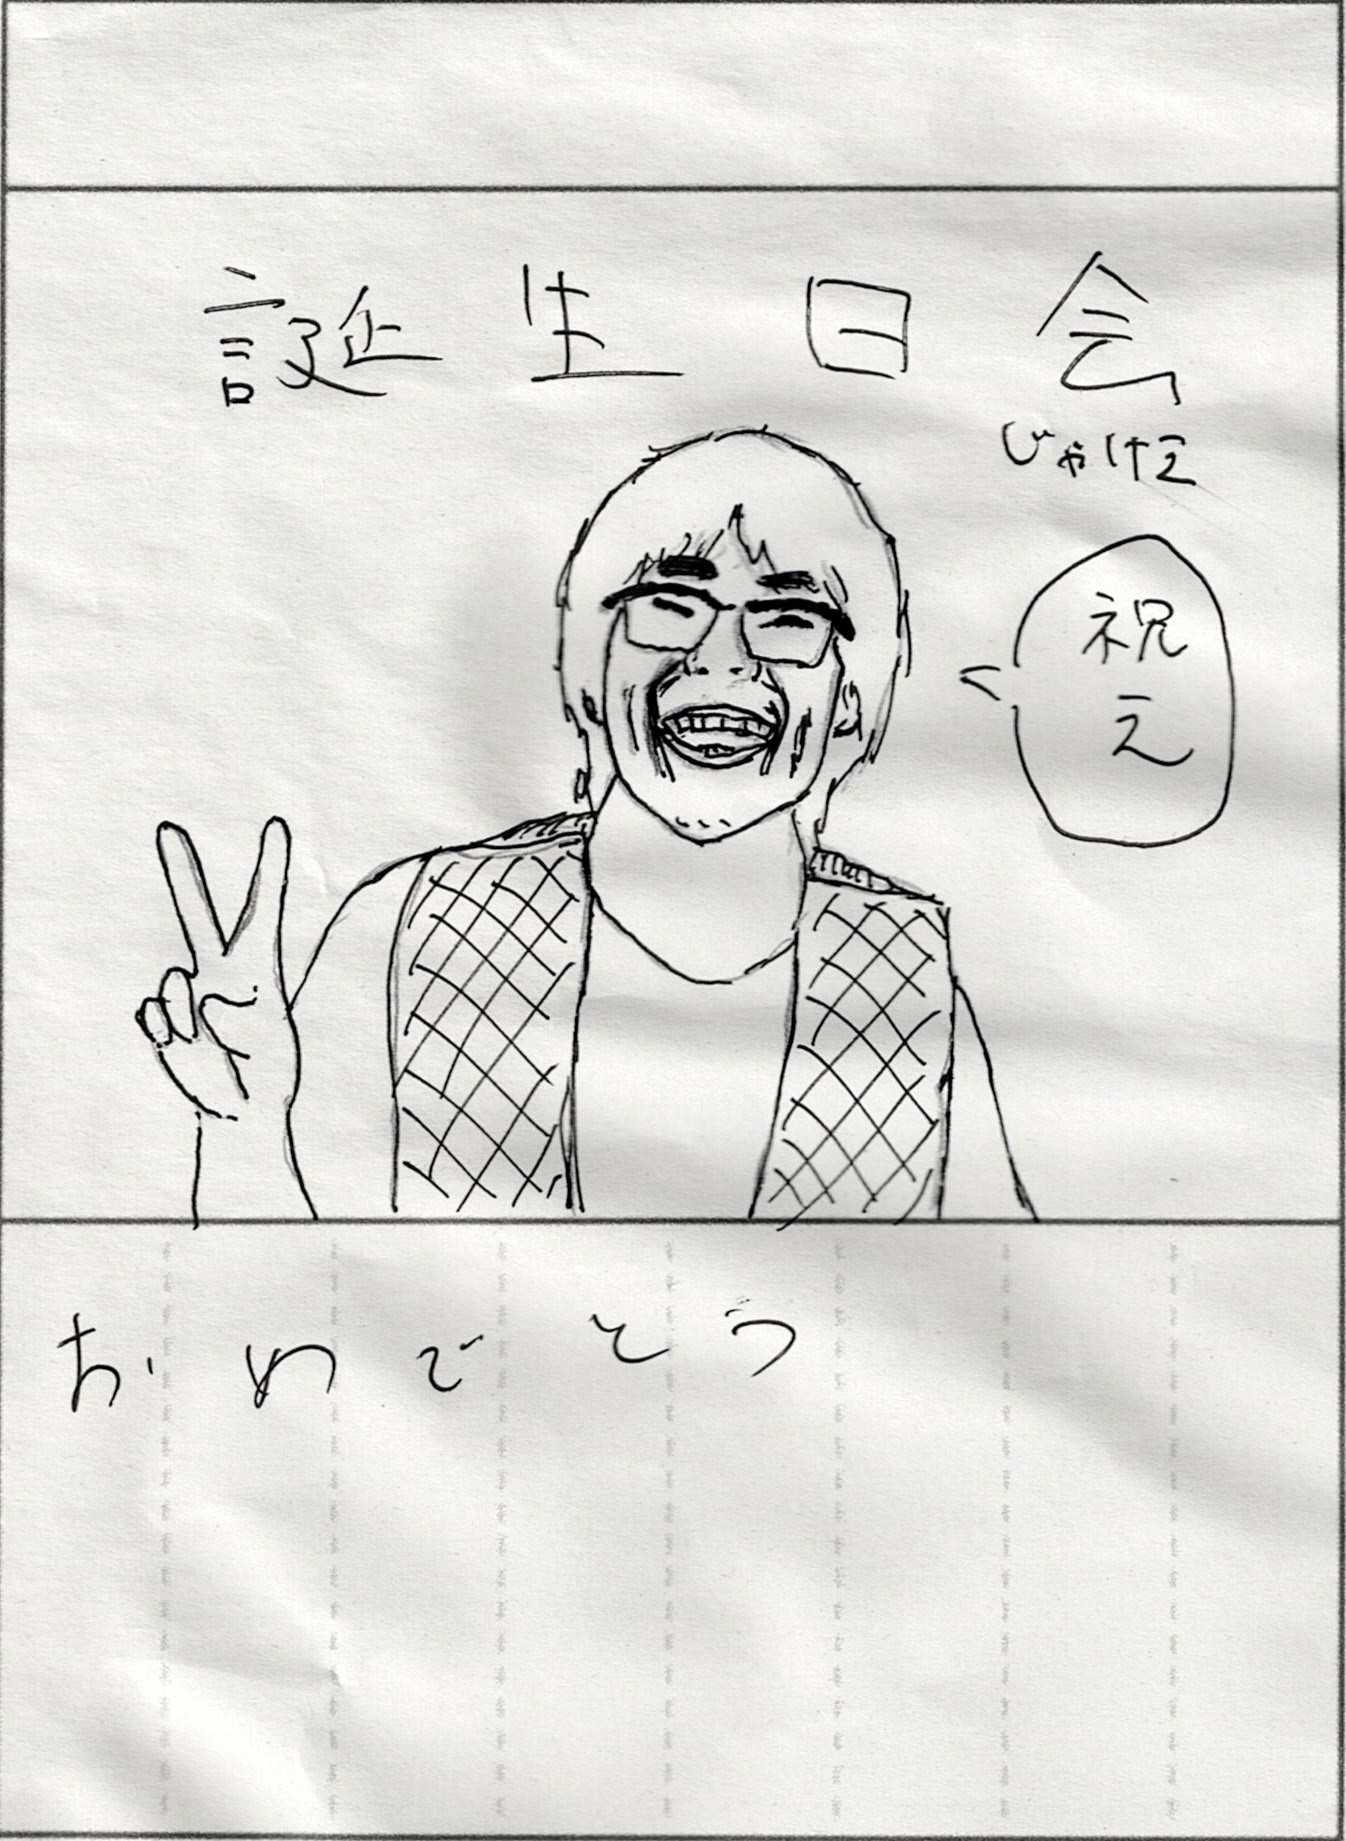 誕生日会
じゃけえ
祝
え
おめでとう